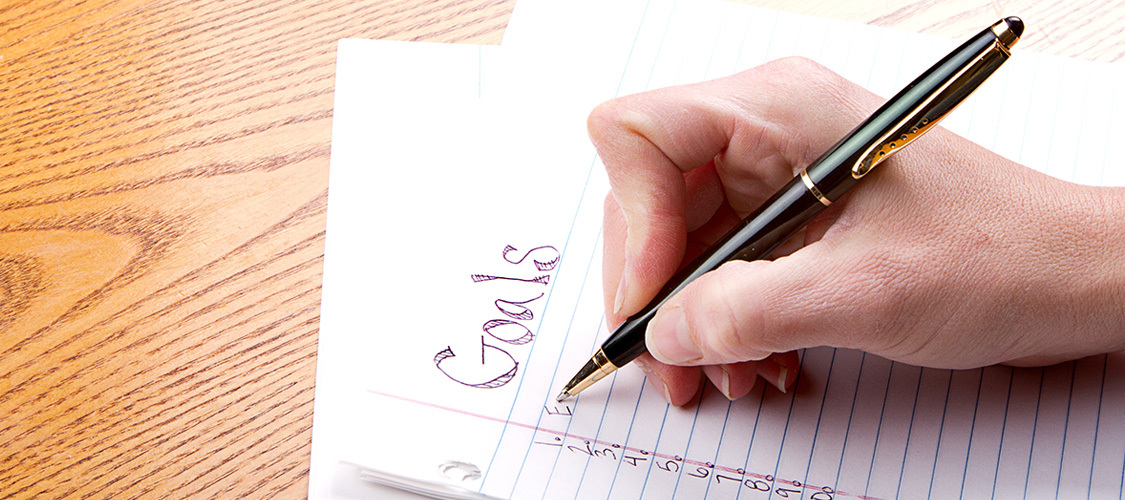 Goals
1. E
2.
3.
4.
5.
6.
7.
8.
9.
0.